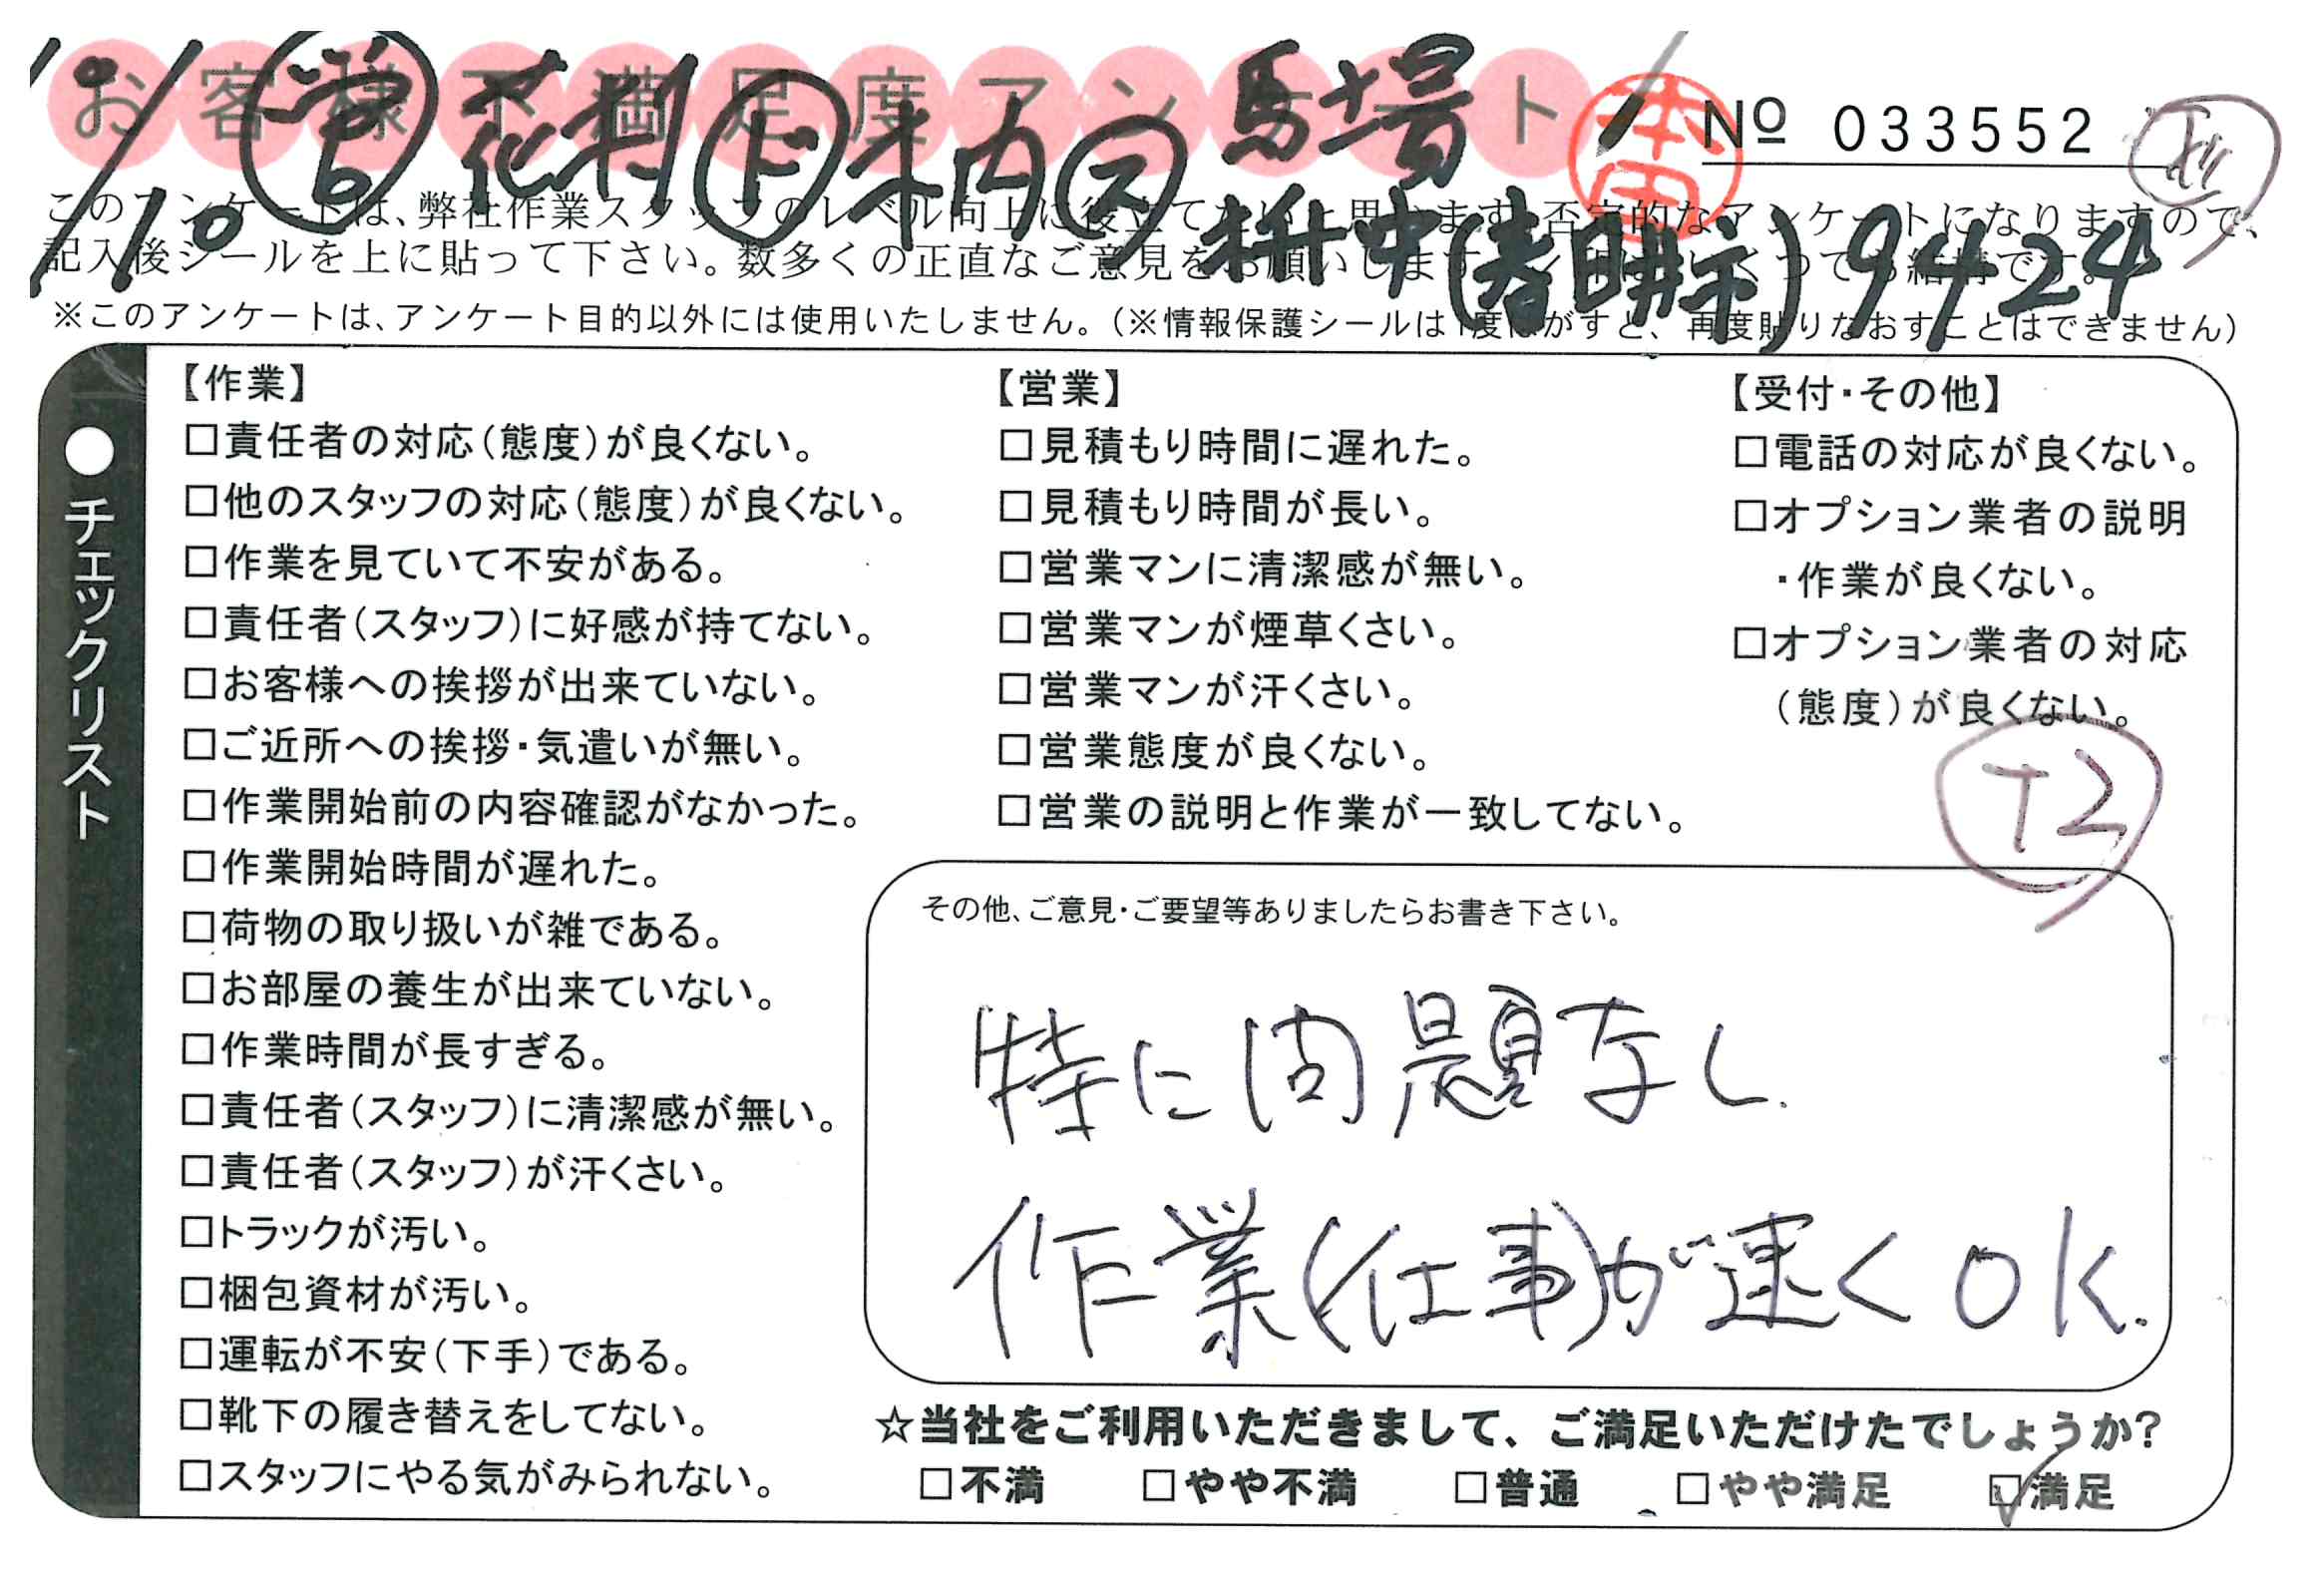 お客様不満足度アンケート
10/10 営 花村 ド 木内 ス 馬場
本田
№ 033552
桝中(春日井市) 9424
このアンケートは、弊社作業スタッフのレベル向上に役立てたいと思います。否定的なアンケートになりますので、
記入後シールを上に貼って下さい。数多くの正直なご意見をお願いします。
※このアンケートは、アンケート目的以外には使用いたしません。(※情報保護シールは1度はがすと、再度貼りなおすことはできません)
●チェックリスト
【作業】
□責任者の対応(態度)が良くない。
□他のスタッフの対応(態度)が良くない。
□作業を見ていて不安がある。
□責任者(スタッフ)に好感が持てない。
□お客様への挨拶が出来ていない。
□ご近所への挨拶・気遣いが無い。
□作業開始前の内容確認がなかった。
□作業開始時間が遅れた。
□荷物の取り扱いが雑である。
□お部屋の養生が出来ていない。
□作業時間が長すぎる。
□責任者(スタッフ)に清潔感が無い。
□責任者(スタッフ)が汗くさい。
□トラックが汚い。
□梱包資材が汚い。
□運転が不安(下手)である。
□靴下の履き替えをしてない。
□スタッフにやる気がみられない。
【営業】
□見積もり時間に遅れた。
□見積もり時間が長い。
□営業マンに清潔感が無い。
□営業マンが煙草くさい。
□営業マンが汗くさい。
□営業態度が良くない。
□営業の説明と作業が一致してない。
【受付・その他】
□電話の対応が良くない。
□オプション業者の説明
・作業が良くない。
□オプション業者の対応
(態度)が良くない。
T2
その他、ご意見・ご要望等ありましたらお書き下さい。
特に問題なし.
作業(仕事)が速くOK.
☆当社をご利用いただきまして、ご満足いただけたでしょうか?
□不満 □やや不満 □普通 □やや満足 ☑満足